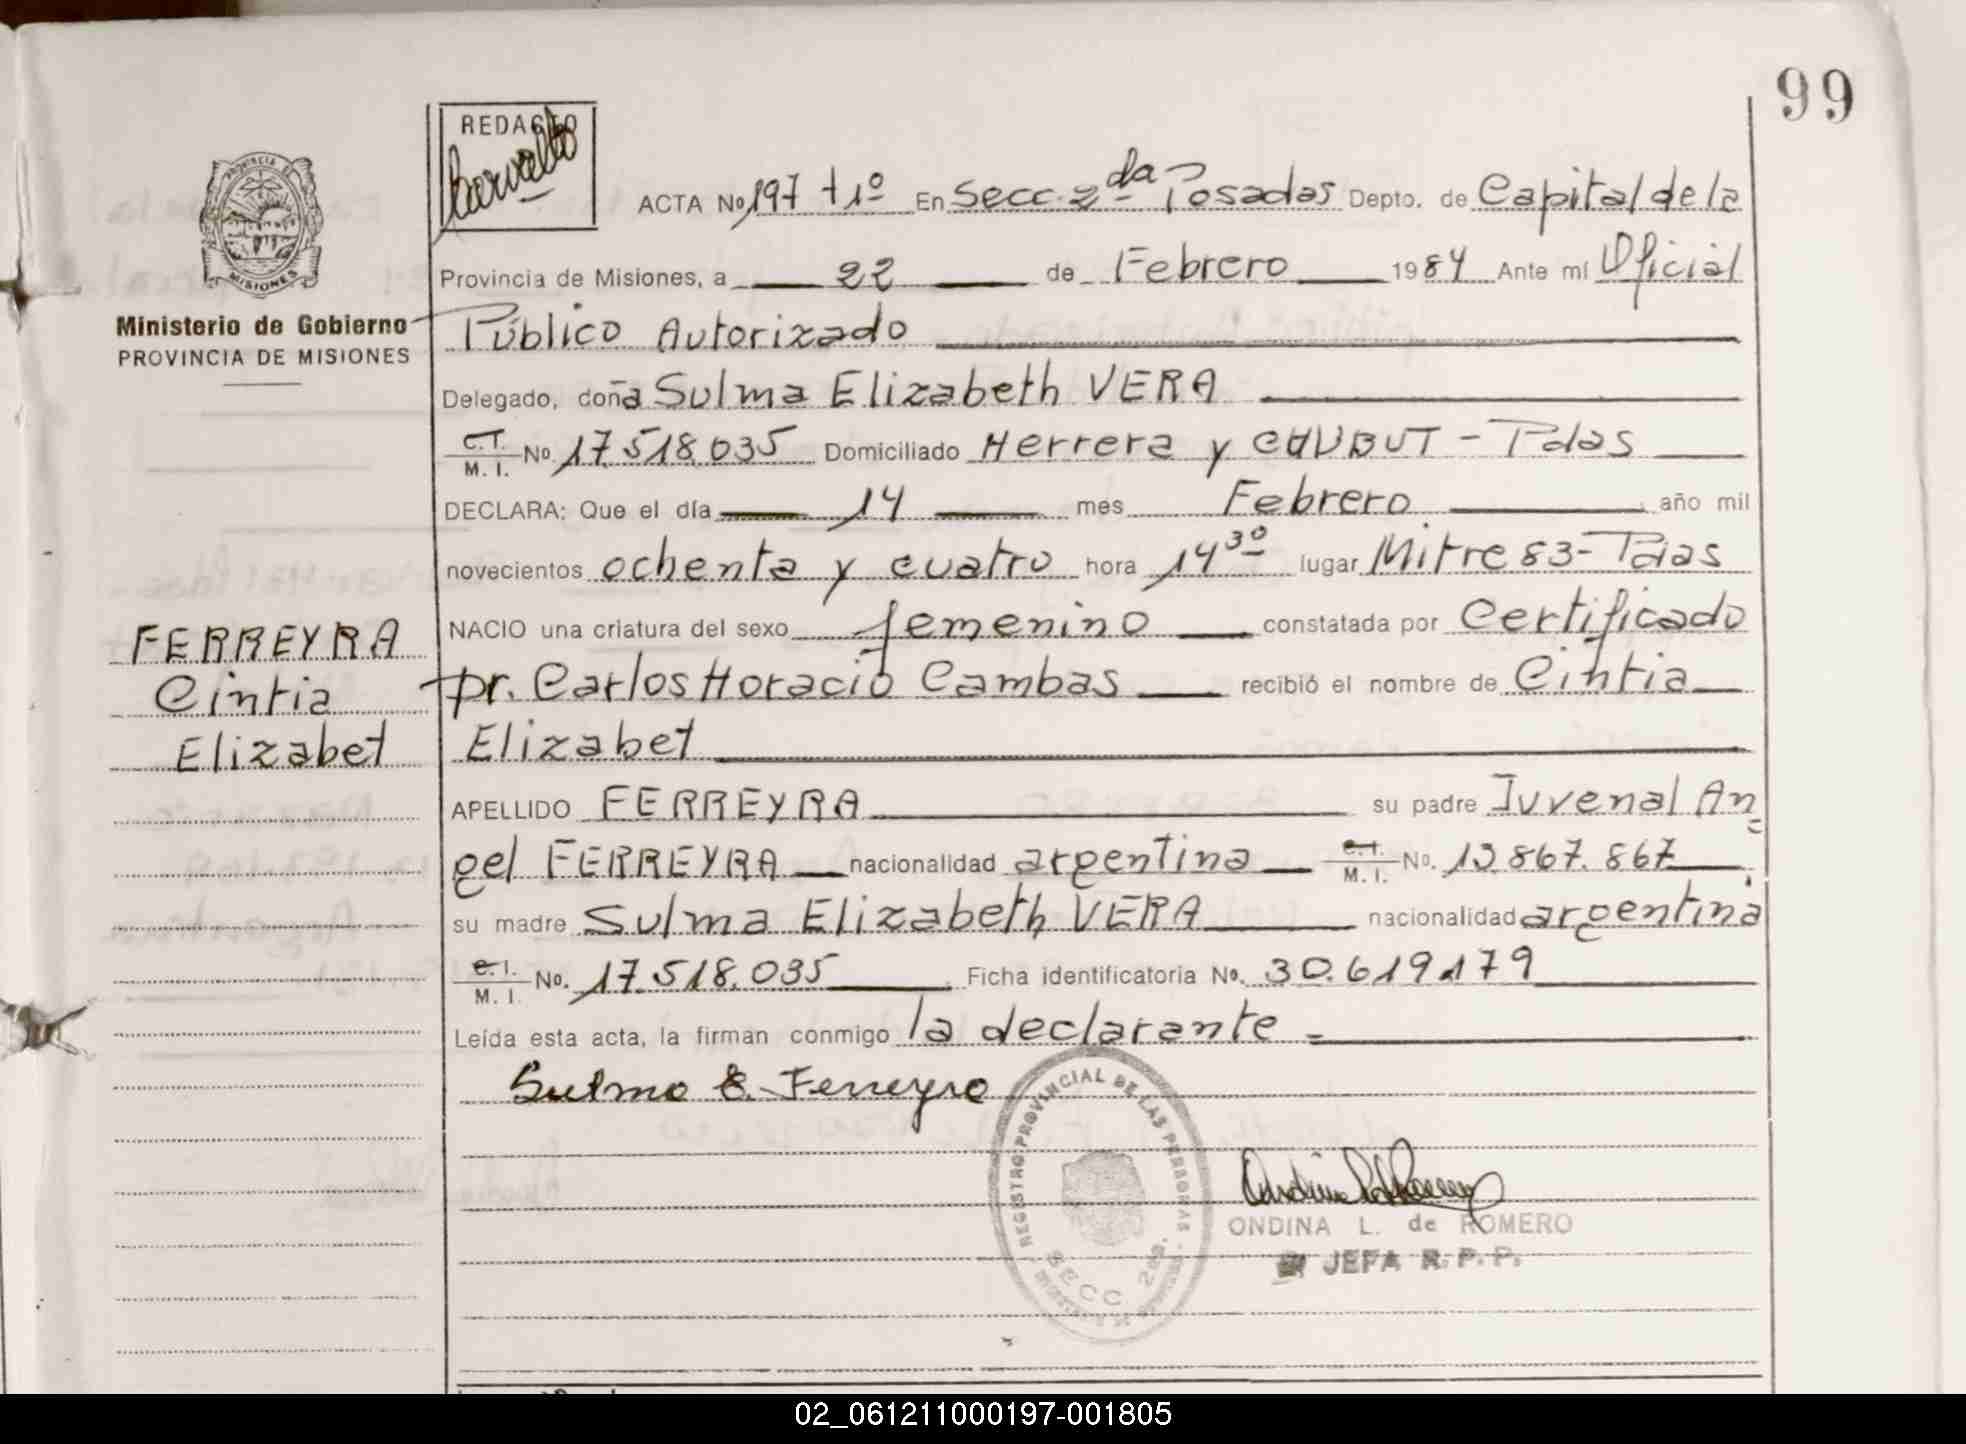 99
REDACTO
PROVINCIA DE
MISIONES
Ministerio de Gobierno
PROVINCIA DE MISIONES
ACTA No 197 t 1º En Secc. 2da Posadas Depto. de Capital de la
Provincia de Misiones, a 22 de Febrero 1984 Ante mí Oficial
Público Autorizado
Delegado, doña Sulma Elizabeth VERA
C.I. M. I. No. 17.518.035 Domiciliado Herrera y CHUBUT - Pdas
DECLARA: Que el día 14 mes Febrero año mil
novecientos ochenta y cuatro hora 14 30 lugar Mitre 83 - Pdas
NACIO una criatura del sexo femenino constatada por Certificado
FERREYRA
Cintia
Elizabet
Dr. Carlos Horacio Cambas recibió el nombre de Cintia
Elizabet
APELLIDO FERREYRA su padre Juvenal An
gel FERREYRA nacionalidad argentina C.I. M. I. No. 13.867.867
su madre Sulma Elizabeth VERA nacionalidad argentina
C.I. M. I. No. 17.518.035 Ficha identificatoria No. 30.619.179
Leída esta acta, la firman conmigo la declarante
Sulma E. Ferreyra
REGISTRO PROVINCIAL DE LAS PERSONAS
SECC. 2da.
ONDINA L. de ROMERO
JEFA R. P. P.
02_061211000197-001805